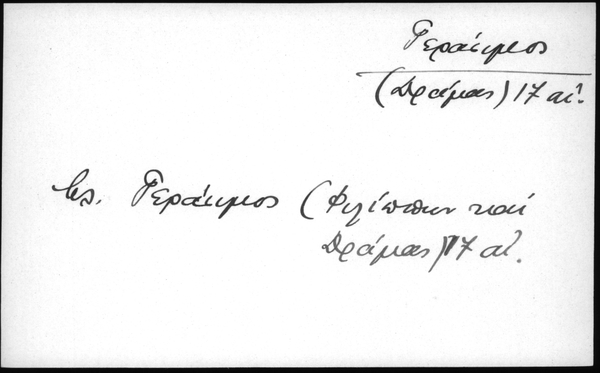 Γεράσιμος
(Δράμας) 17 αἰ.
βλ. Γεράσιμος (Φιλίππων καί
Δράμας) 17 αἰ.